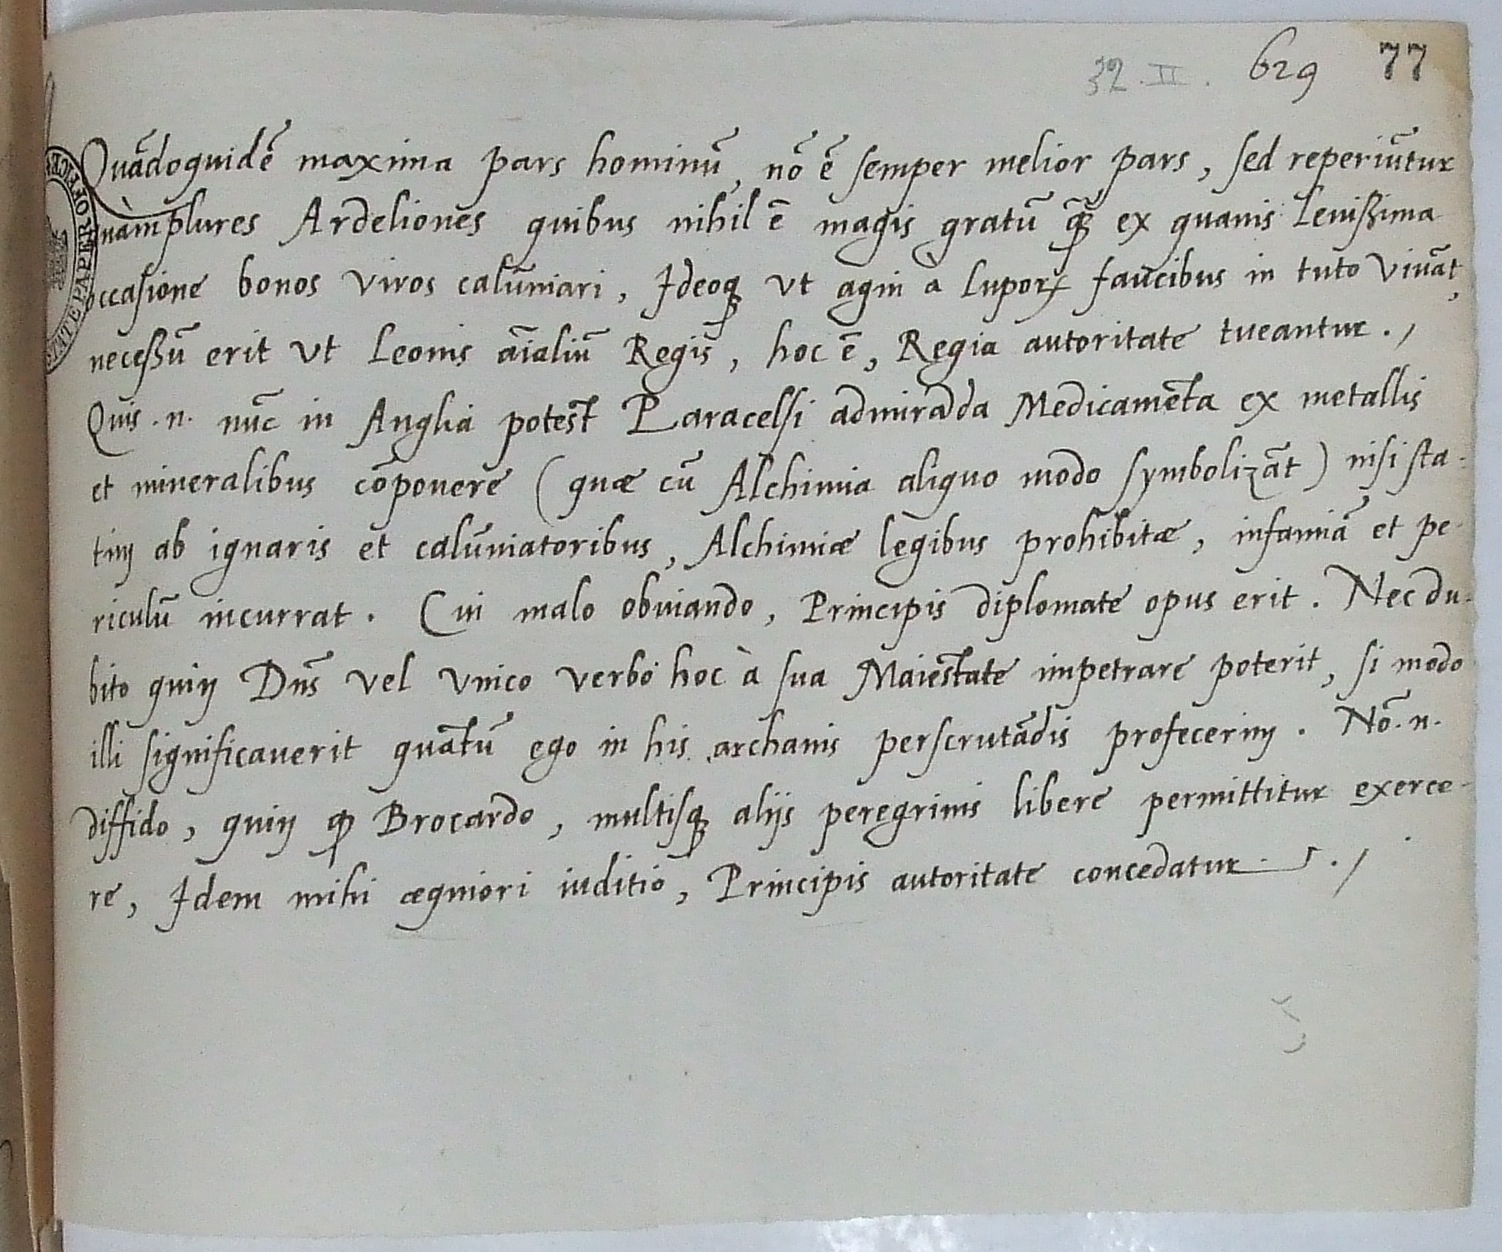 32. II. 629 77
Quãdoquidẽ maxima pars hominũ, nõ ẽ semper melior pars, sed reperiũtur
quàmplures Ardeliones quibus nihil ẽ magis gratũ quã ex quavis levißima
occasione bonos viros calũniari, Ideoq̃ ut agni à luporꝝ faucibus in tuto vivãt,
necessũ erit ut Leonis aĩaliũ Regis, hoc ẽ, Regia autoritate tueantur./
Quis .n. nũc in Anglia potest Paracelsi admirãda Medicamẽta ex metallis
et mineralibus cõponere (quæ cũ Alchimia aliquo modo symbolizãt) nisi sta-
tim ab ignaris et calũniatoribus, Alchimiæ legibus prohibitæ, infamiã et pe-
riculũ incurrat. Cui malo obviando, Principis diplomate opus erit. Nec du-
bito quin Dñs vel unico verbo hoc à sua Maiestate impetrare poterit, si modo
illi significaverit quãtũ ego in his archanis perscrutãdis profecerim. Nõ .n.
diffido, quin qꝫ Brocardo, multisq̃ alijs peregrinis libere permittitur exerce-
re, Idem mihi æquiori iuditio, Principis autoritate concedatur./
STATE PAPER OFFICE